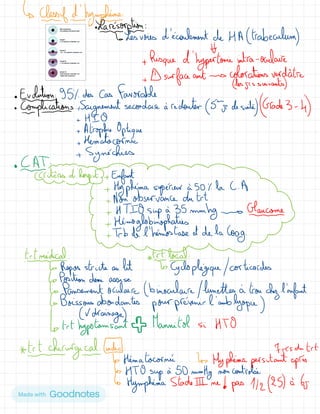 ↳ Classif d'hyphéma
• La résorption:
↳ Les voies d'écoulement de HA (trabeculum)
+ Risque d'hypertonie intra-oculaire
+ surface ant → colorations verdâtre
(les jrs suivants)
• Evolution: 95% des cas favorable
• Complications: Saignement secondaire à redouter (5e jr de suite) (Grade 3-4)
+ HTO
+ Atrophie Optique
+ Hématocornée
+ Synéchies
• CAT
Critères d'hospit
+ Enfant
+ Hyphéma supérieur à 50% la C.A
+ Non observance du trt
+ HTIO sup à 35 mmHg → Glaucome
+ Hémoglobinopathies
+ Trb de l'hémostase et de la Coag
trt médical
↳ Repos stricte au lit
↳ Position demi assise
↳ Pansement oculaire (binoculaire / lunettes à trou chez l'enfant pour prévenir l'amblyopie)
↳ Boissons abondantes
(√ drainage)
↳ trt hypotonisant + Mannitol si HTO
* trt local
↳ Cycloplégique / corticoïdes
* trt chirurgical
↳ Hématocornée
↳ HTO sup à 50 mmHg non contrôlée
↳ Hyphéma persistant après
7 jrs du trt
↳ Hyphéma Stade III ne ↓ pas 1/2 (25) à 6j
Made with Goodnotes